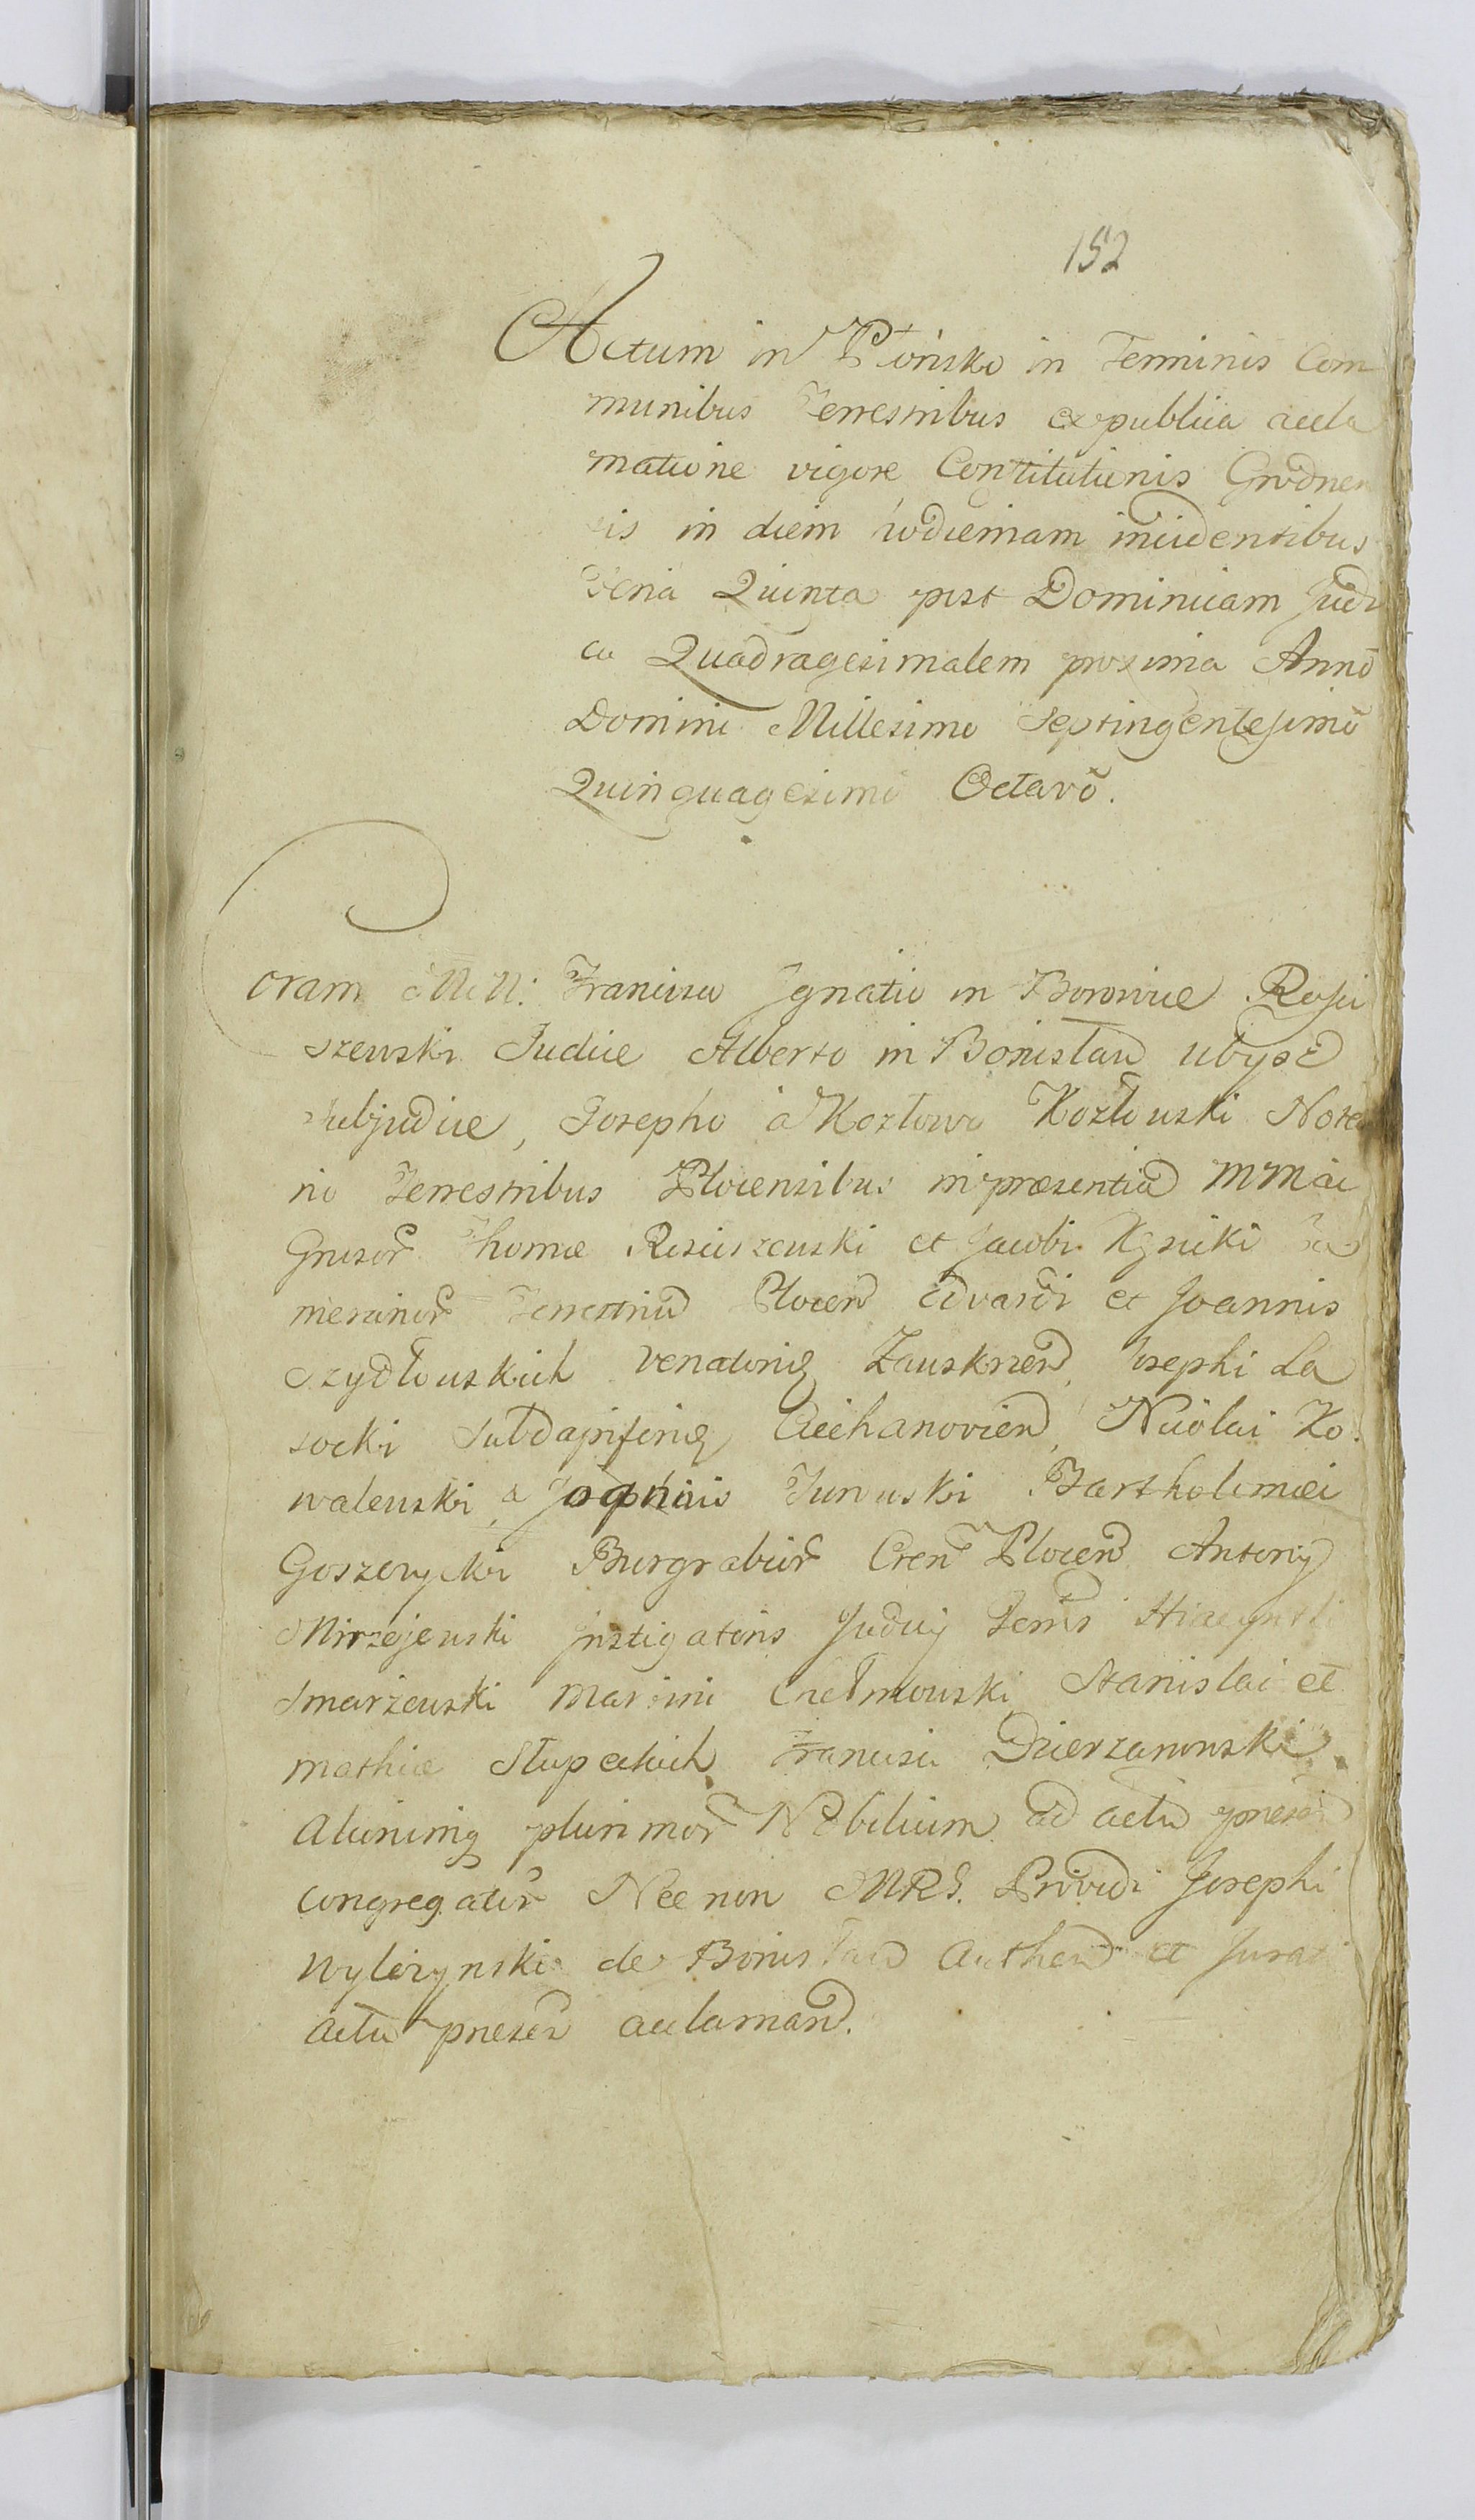 152
Actum in Płońsko in Terminis Com
munibus Terrestribus ex publica accla
matione vigore Constitutionis Grodnen
sis in diem hodiernam incidentibus
Feria Quinta post Dominicam Judi
ca Quadragesimalem proxima Anno
Domini Millesimo Septingentesimo
Quinquagesimo Octavo.
Coram MM: Francisco Ignatio in Borowice Rosci
szewski Judice Alberto in Bonisław Ubysz
Subjudice, Josepho à Kozłowo Kozłowski Nota
rio Terrestribus Plocensibus in præsentia MM ac
Gnrosor Thomæ Rosciszewski et Jacobi Kęsicki
merarior Terrestriu Plocen Edvardi et Joannis
Szydłowskich Venatorid Zauskrzen, Josephi La
socki Subdapiferid Ciechanovien, Nicolai Ko
walewski, a Junowski Bartholomæi
Goszczycki Burgrabior Cren Plocen Antonij
Mirzejewski Instigatoris Judicij Terris Hiacynti
Smarzewski Martini Chełmowski Stanislai et
Mathiæ Słupeckich Francisci Dzierzanowski.
Aliorumq plurimor Nobilium ad actu præsen
congregator Necnon MRS. Providi Josephi
Wylezynski de Bonisław Authen et Jurati
actu præsen acclaman.